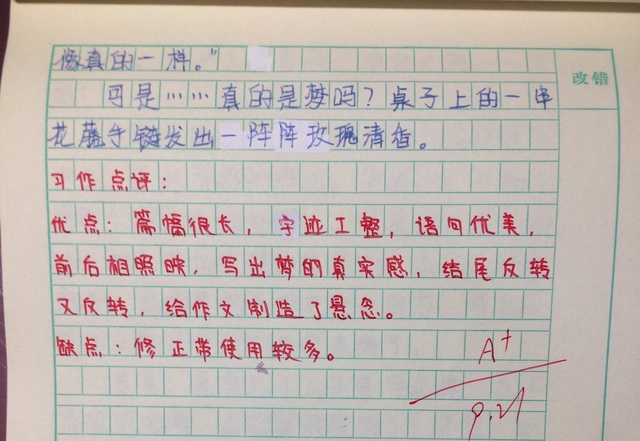 像真的一样。”
改错
可是……真的是梦吗？桌子上的一串
花藤手链发出一阵阵玫瑰清香。
习作点评：
优点：篇幅很长，字迹工整，语句优美，
前后相照映，写出梦的真实感，结尾反转
又反转，给作文制造了悬念。
缺点：修正带使用较多。
A+
9.21